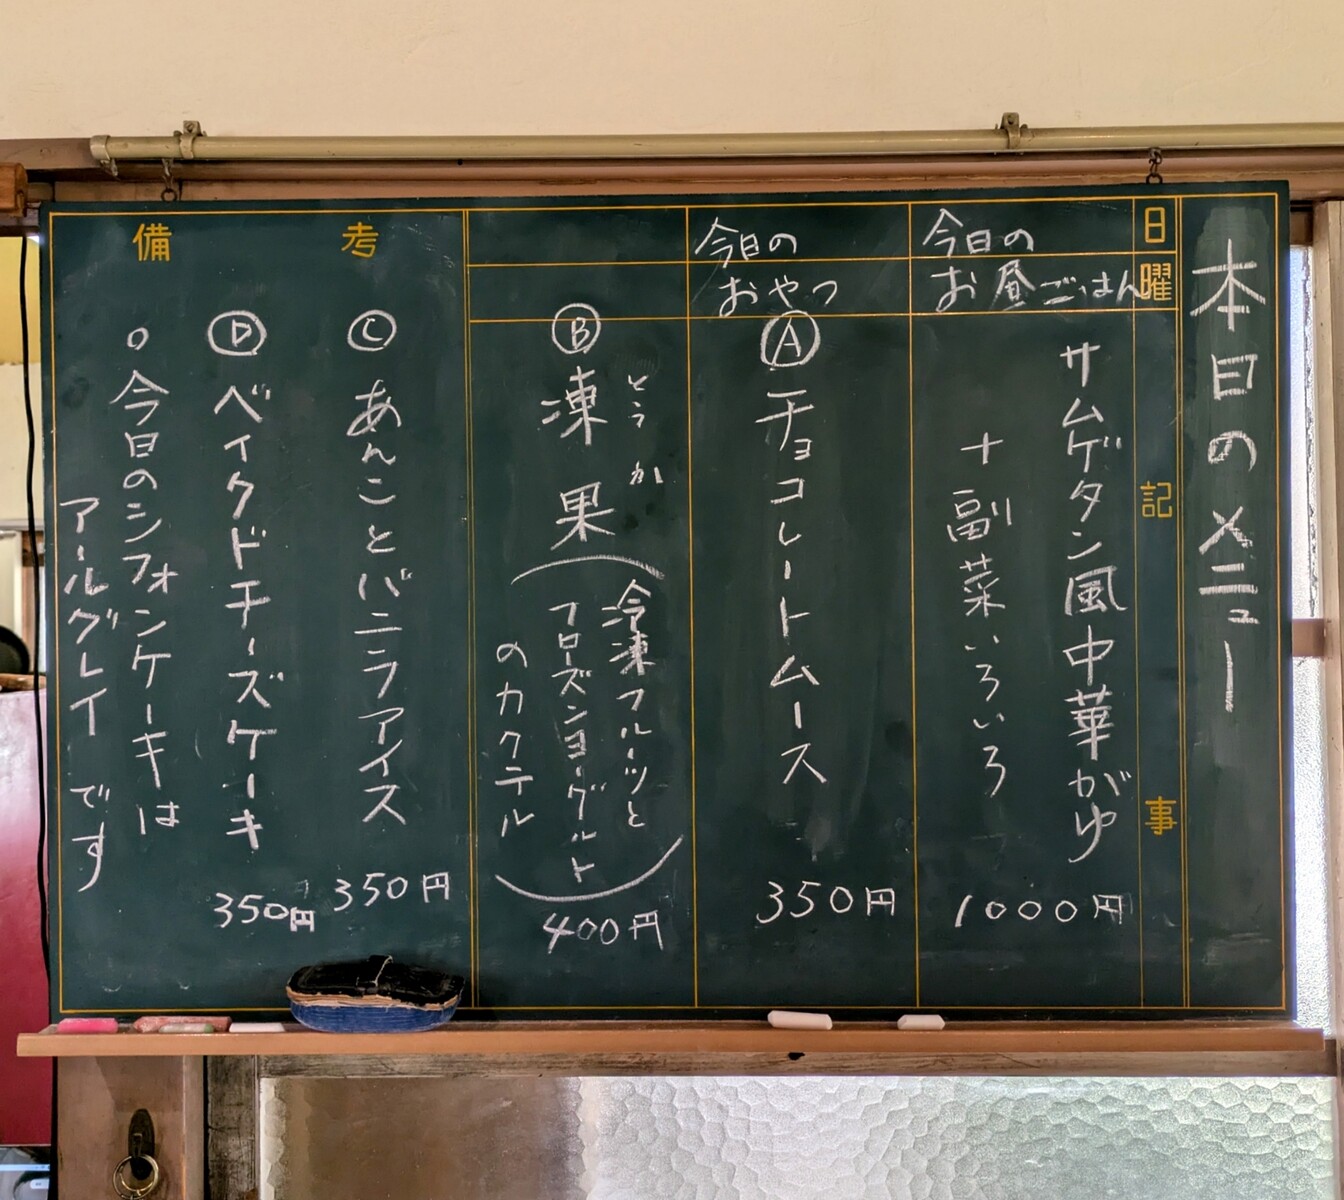 本日のメニュー
日
曜
記
事
今日の
お昼ごはん
サムゲタン風中華がゆ
+ 副菜いろいろ
1000円
今日の
おやつ
Ⓐ チョコレートムース
350円
Ⓑ 凍果
とうか
(冷凍フルーツと
フローズンヨーグルト
のカクテル)
400円
備考
Ⓒ あんことバニラアイス
350円
Ⓓ ベイクドチーズケーキ
350円
○今日のシフォンケーキは
アールグレイです